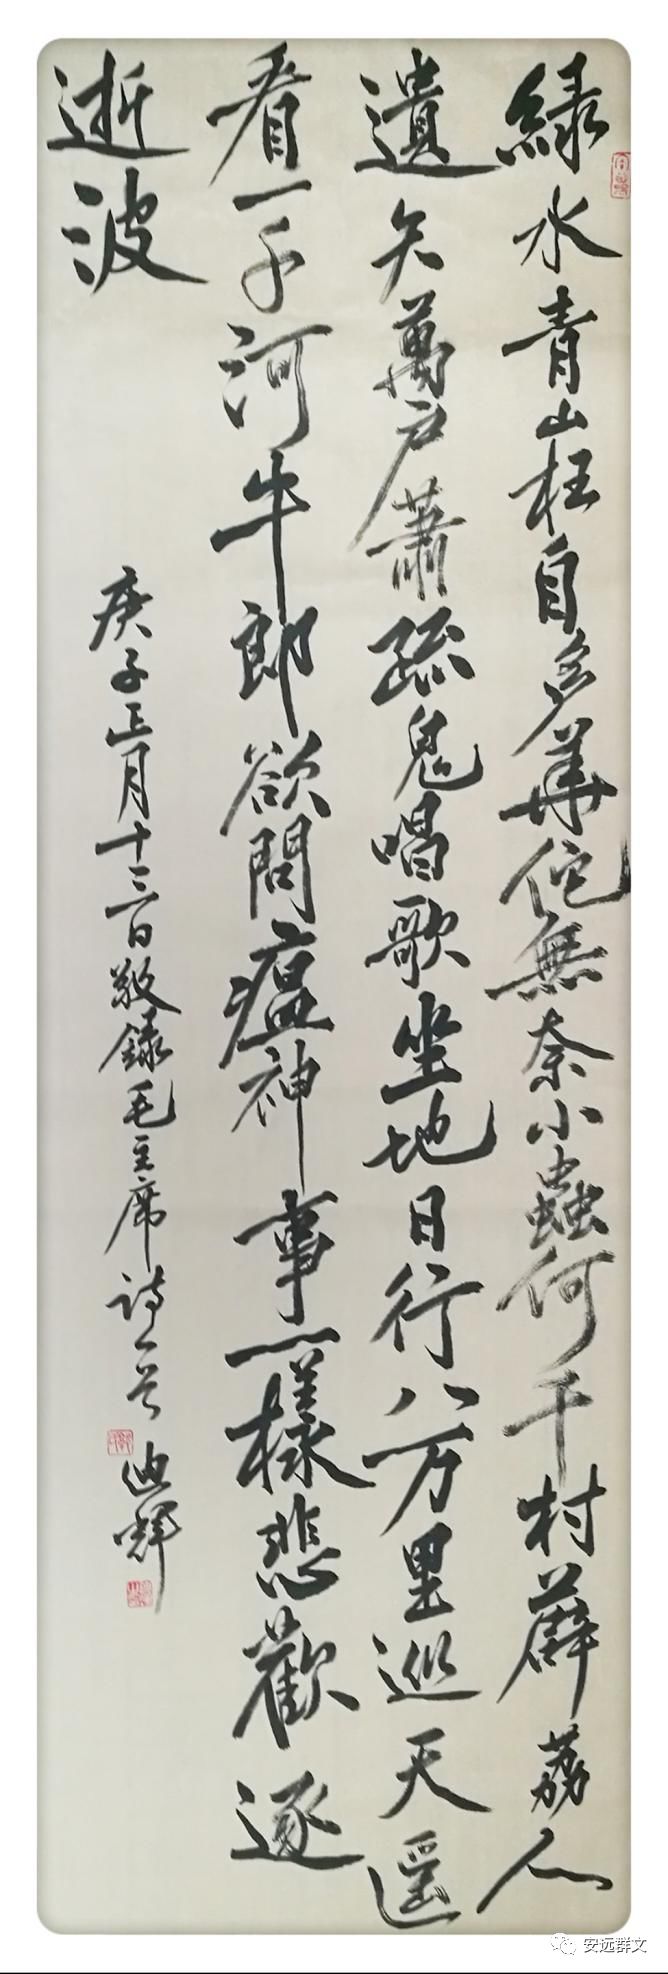 綠水青山枉自多華佗無奈小蟲何千村薜荔人
遺矢萬戶蕭疏鬼唱歌坐地日行八万里巡天遥
看一千河牛郎欲問瘟神事一樣悲歡逐
逝波
庚子正月十三日敬錄毛主席詩一首
迪輝
安远群文